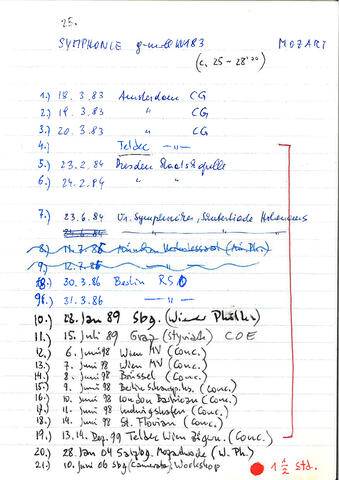 25.
SYMPHONIE g-moll KV183 MOZART
(c. 25 - 28'00)
1.) 18. 3. 83 Amsterdam CG
2.) 19. 3. 83 " CG
3.) 20. 3. 83 " CG
4.) Teldec —"—
5.) 23. 2. 84 Dresden Staatskapelle
6.) 24. 2. 84 " "
7.) 23. 6. 84 Wr. Symphoniker, Hohenems
24. 6. 84
8.) 11. 7. 85
9.) 12. 7. 85
8.) 30. 3. 86 Berlin RSO
9.) 31. 3. 86 —"—
10.) 28. Jan 89 Sbg. (Wiener Philh.)
11.) 15. Juli 89 Graz (styriarte) COE
12.) 6. Juni 98 Wien MV (Conc.)
13.) 7. Juni 98 Wien MV (Conc.)
14.) 8. Juni 98 Brüssel (Conc.)
15.) 9. Juni 98 Berlin (Conc.)
16.) 10. Juni 98 London Barbican (Conc.)
17.) 11. Juni 98 Ludwigshafen (Conc.)
18.) 14. Juni 98 St. Florian (Conc.)
19.) 13., 14. Dez. 99 Teldec Wien (Conc.)
20.) 28. Jan 04 Salzbg. Mozartwoche (W. Ph.)
21.) 10. Juni 06 Sbg (Camerata) Workshop
1 1/2 Std.